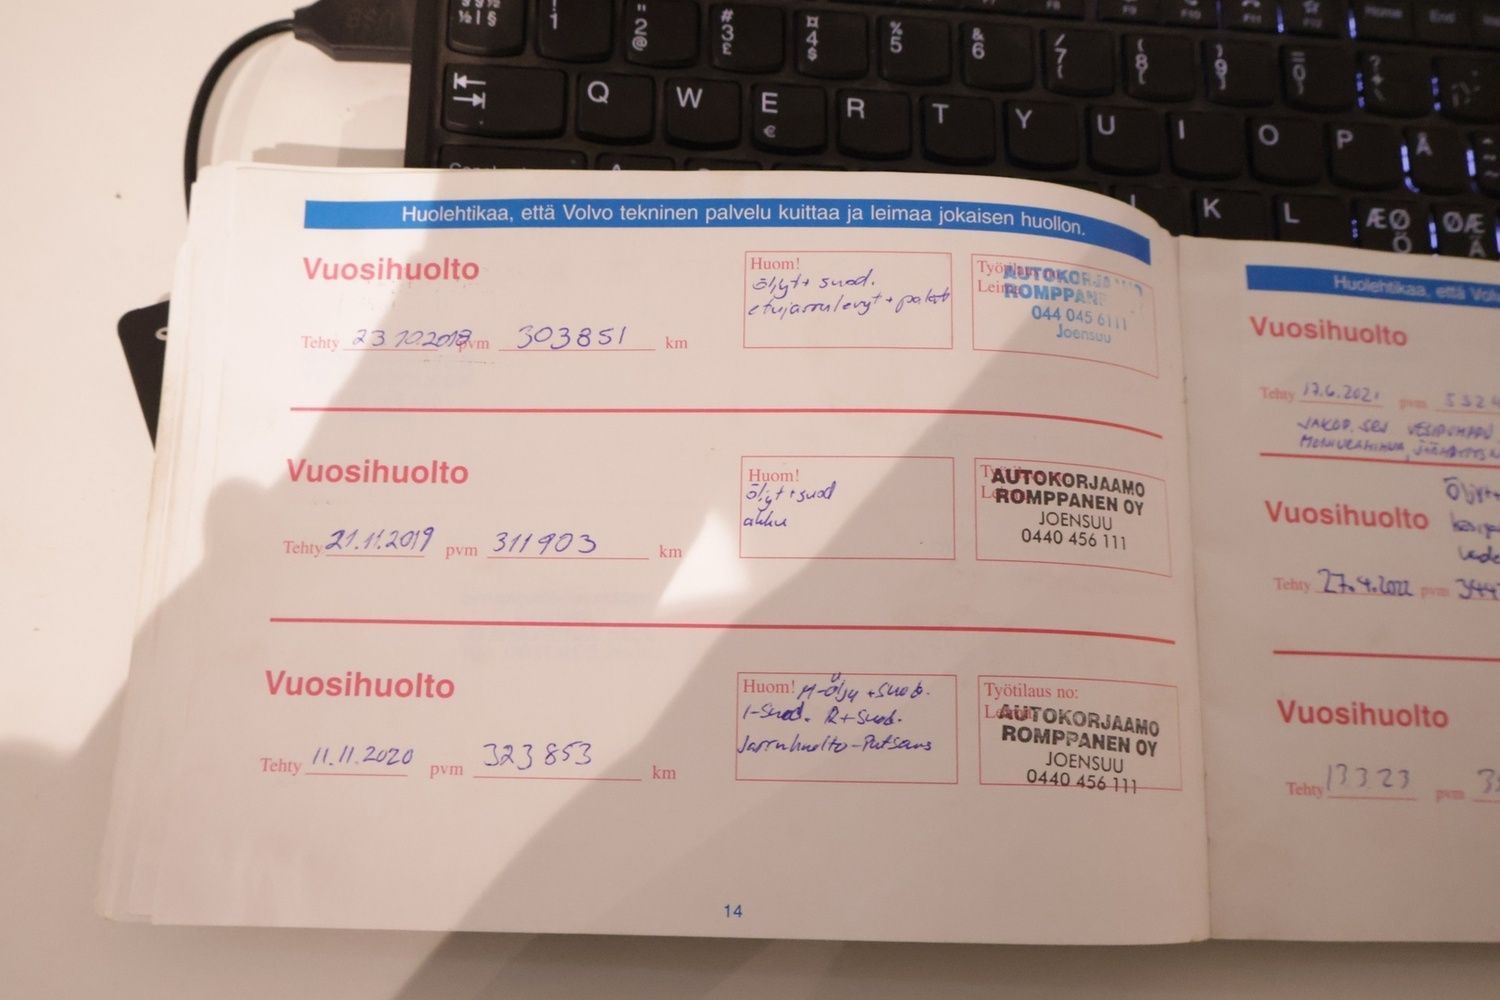 Q W E R T Y U I O P Å
K L
Huolehtikaa, että Volvo tekninen palvelu kuittaa ja leimaa jokaisen huollon.
Vuosihuolto
Tehty 23.10.2018 pvm 303851 km
Huom!
öljyt + suod.
etujarrulevyt + palat
AUTOKORJAAMO
ROMPPANEN
044 045 6111
Joensuu
Vuosihuolto
Tehty 21.11.2019 pvm 311903 km
Huom!
öljyt + suod
akku
AUTOKORJAAMO
ROMPPANEN OY
JOENSUU
0440 456 111
Vuosihuolto
Tehty 11.11.2020 pvm 323853 km
Huom! M-öljy + suod.
I-Suod. R+Suod.
Jarruhuolto-Putsaus
Työtilaus no:
AUTOKORJAAMO
ROMPPANEN OY
JOENSUU
0440 456 111
14
Huolehtikaa, että
Vuosihuolto
Tehty 17.6.2021 pvm
Vuosihuolto
Tehty 27.4.2022 pvm
Vuosihuolto
Tehty 13 3 23 pvm